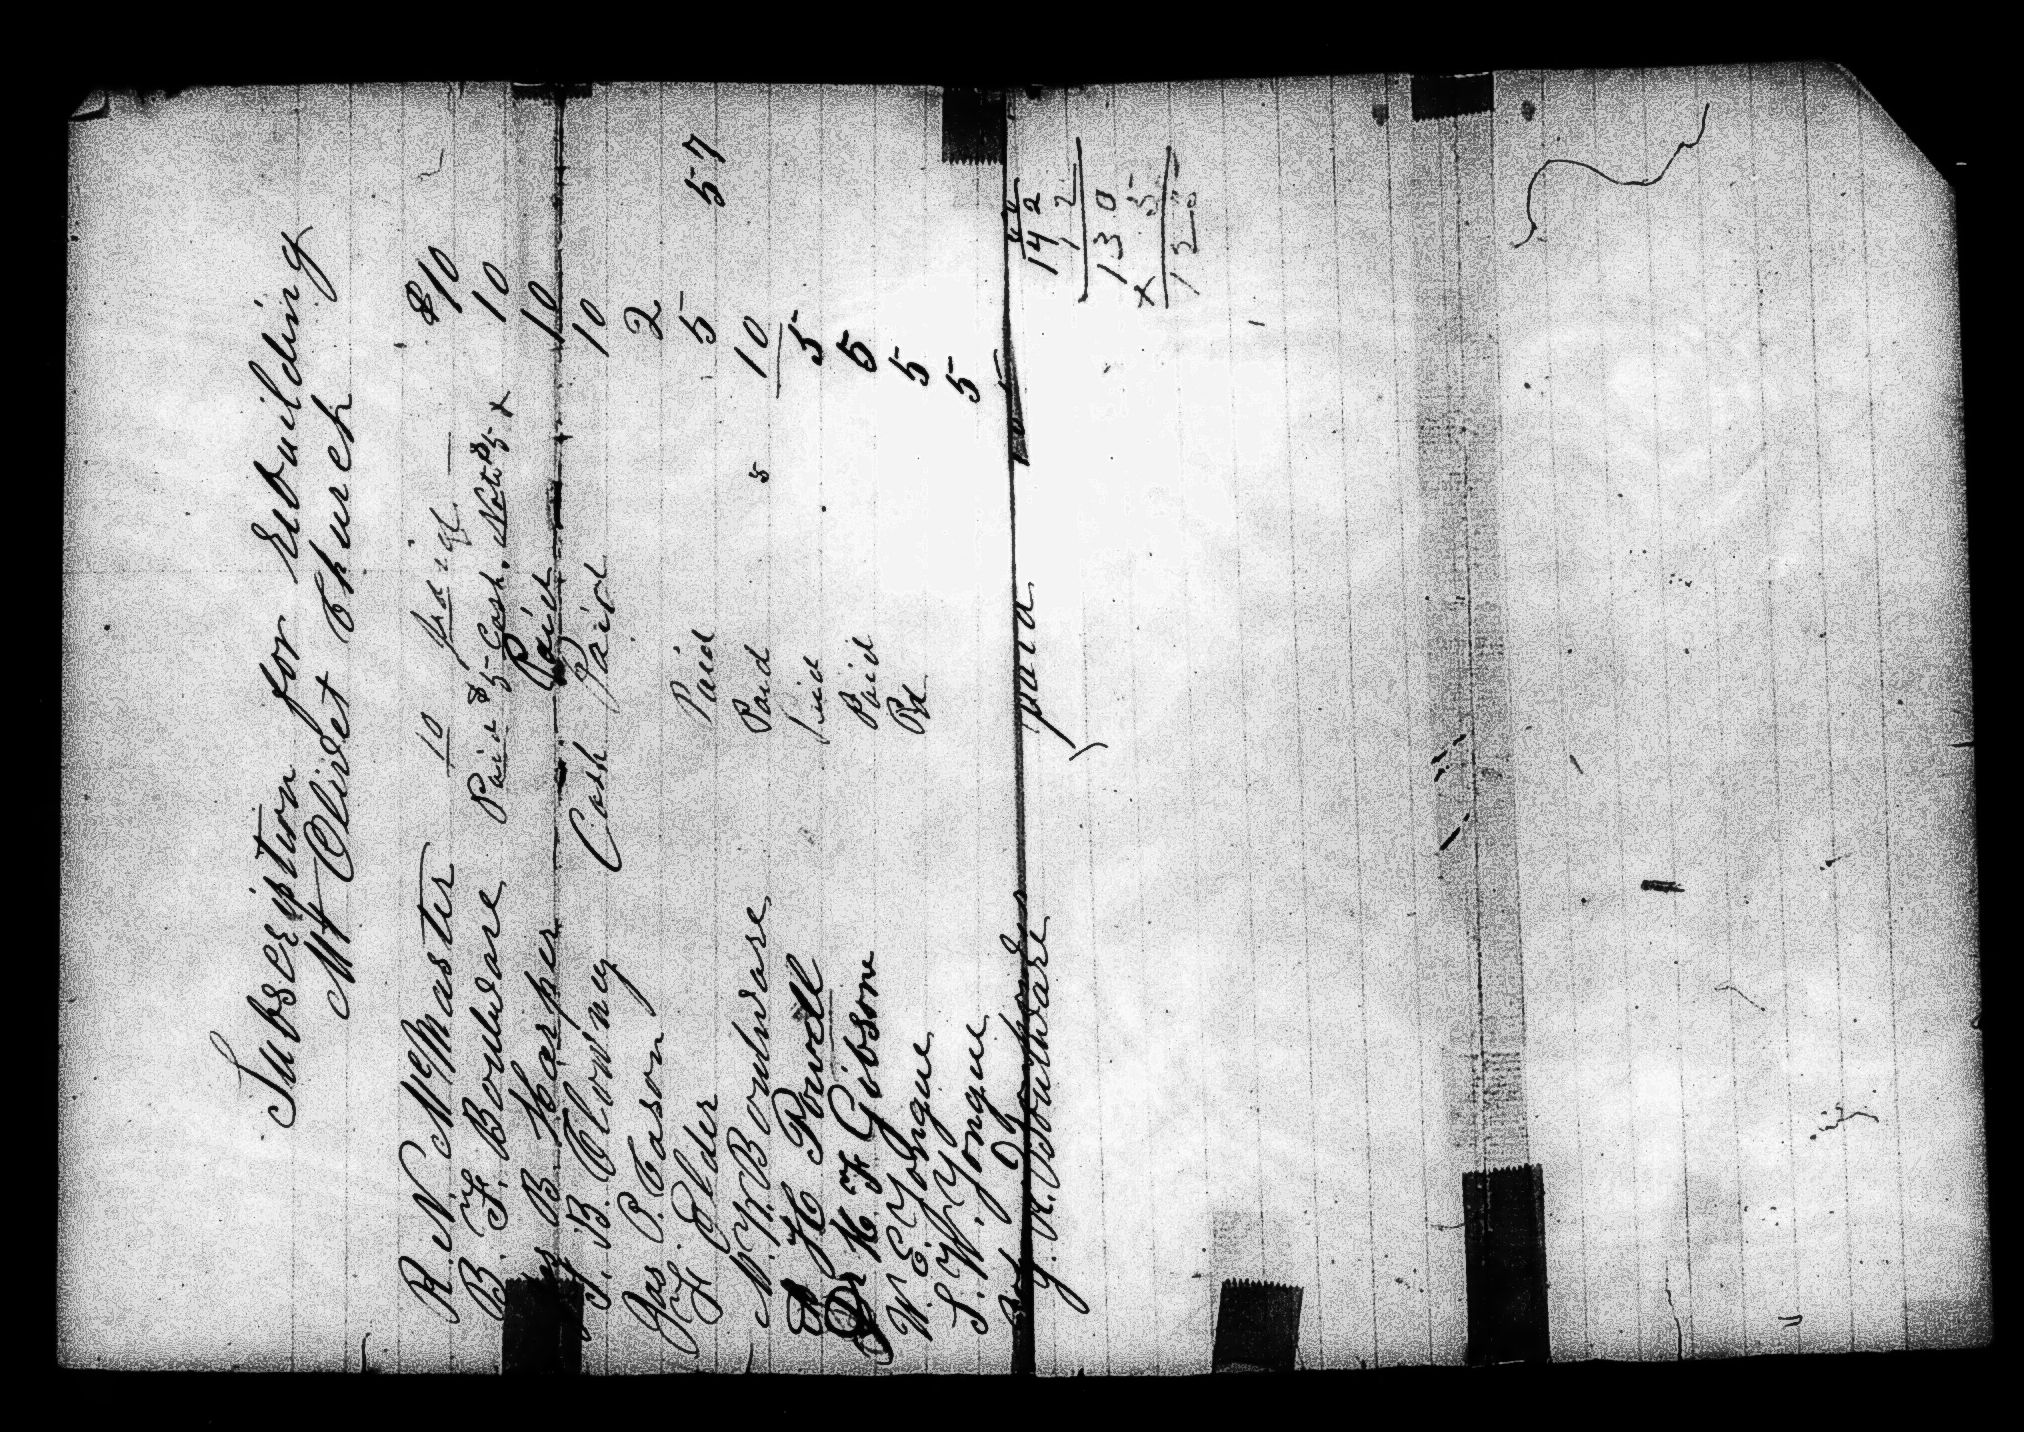 Subscription for rebuilding
Mt Olivet Church
R. N. McMaster 10 pd $10
B. F. Boulware Paid $5 Cash. Note $5 x 10
B. Harper Paid 10
B. Clowney Cash Paid 10
Jas. P. Cason 2
Elder Paid 5 57
M. Boulware Paid 5 10
H Powell Paid 5
Dr K F Gibson Paid 5
W. E. Yongue Pd 5
S. W. Yongue 5
J. R. Boulware paid
142
12
130
x 5
135